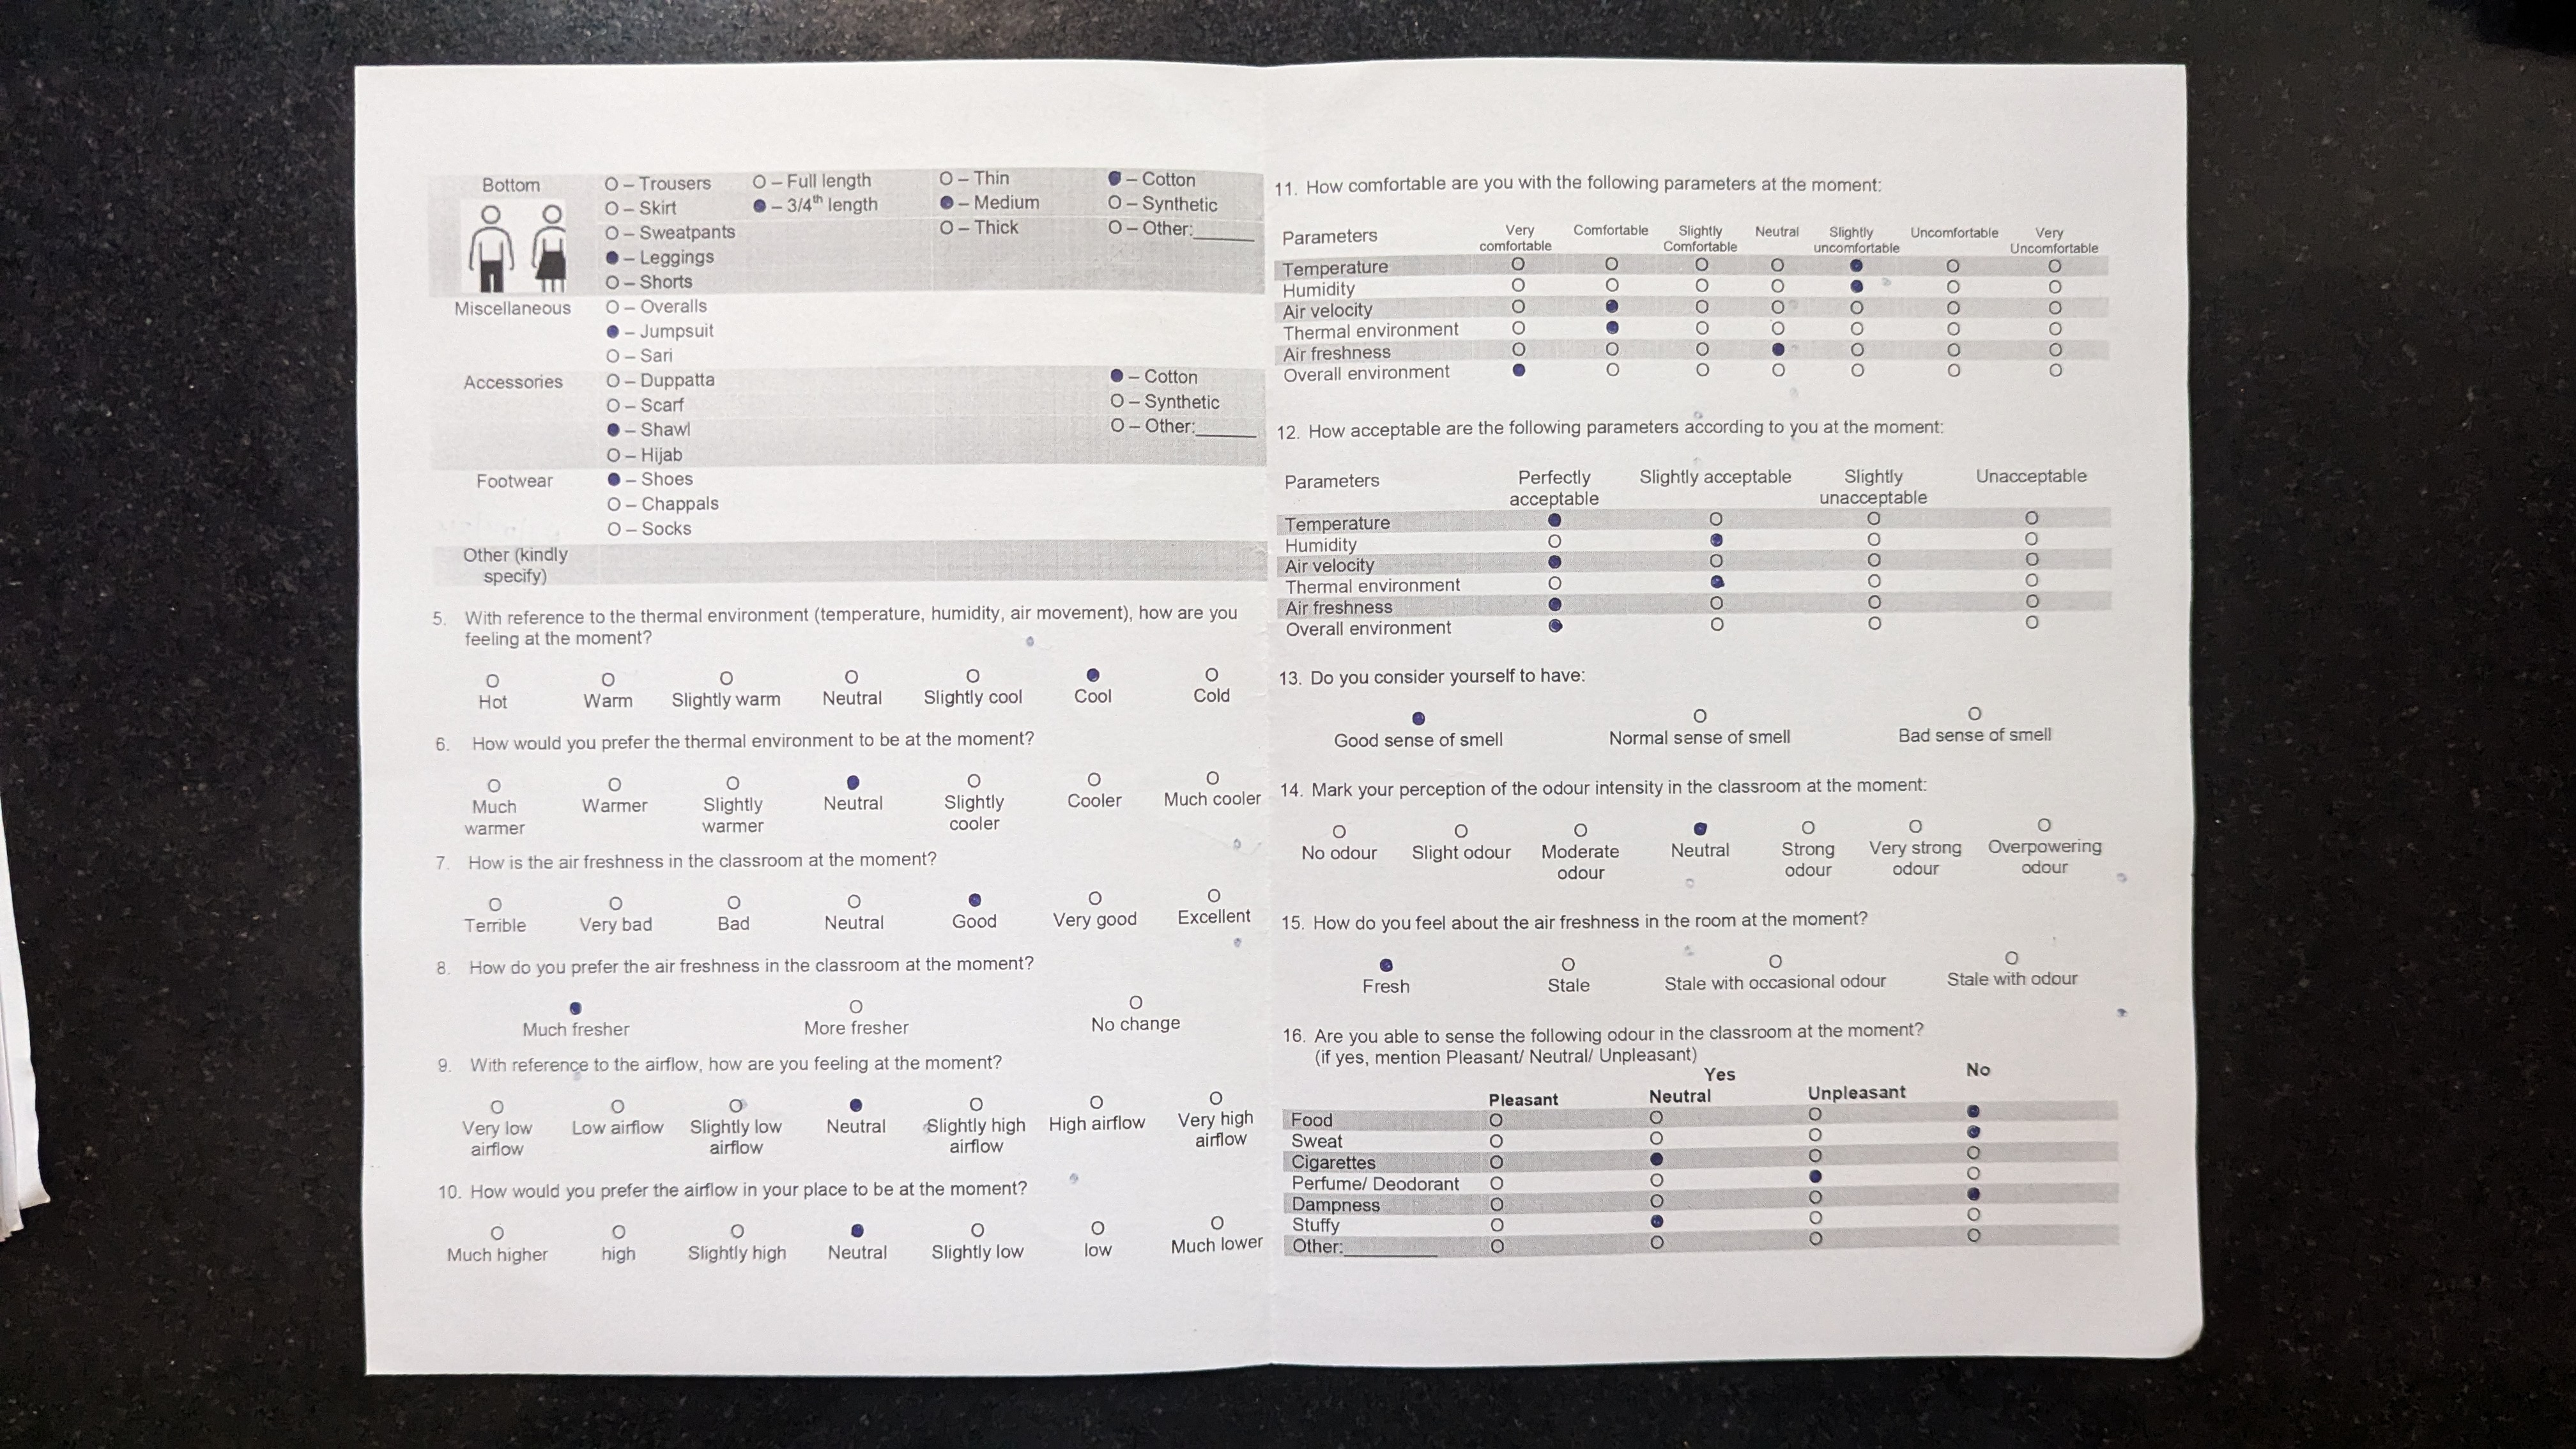 Bottom
O – Trousers O – Full length O – Thin ● – Cotton
O – Skirt ● – 3/4th length ● – Medium O – Synthetic
O – Sweatpants O – Thick O – Other:______
● – Leggings
O – Shorts
Miscellaneous O – Overalls
● – Jumpsuit
O – Sari
Accessories O – Duppatta ● – Cotton
O – Scarf O – Synthetic
● – Shawl O – Other:______
O – Hijab
Footwear ● – Shoes
O – Chappals
O – Socks
Other (kindly
specify)
5. With reference to the thermal environment (temperature, humidity, air movement), how are you
feeling at the moment?
O O O O O ● O
Hot Warm Slightly warm Neutral Slightly cool Cool Cold
6. How would you prefer the thermal environment to be at the moment?
O O O ● O O O
Much Warmer Slightly Neutral Slightly Cooler Much cooler
warmer warmer cooler
7. How is the air freshness in the classroom at the moment?
O O O O ● O O
Terrible Very bad Bad Neutral Good Very good Excellent
8. How do you prefer the air freshness in the classroom at the moment?
● O O
Much fresher More fresher No change
9. With reference to the airflow, how are you feeling at the moment?
O O O ● O O O
Very low Low airflow Slightly low Neutral Slightly high High airflow Very high
airflow airflow airflow airflow
10. How would you prefer the airflow in your place to be at the moment?
O O O ● O O O
Much higher high Slightly high Neutral Slightly low low Much lower
11. How comfortable are you with the following parameters at the moment:
Parameters Very Comfortable Slightly Neutral Slightly Uncomfortable Very
comfortable Comfortable uncomfortable Uncomfortable
Temperature O O O O ● O O
Humidity O O O O ● O O
Air velocity O ● O O O O O
Thermal environment O ● O O O O O
Air freshness O O O ● O O O
Overall environment ● O O O O O O
12. How acceptable are the following parameters according to you at the moment:
Parameters Perfectly Slightly acceptable Slightly Unacceptable
acceptable unacceptable
Temperature ● O O O
Humidity O ● O O
Air velocity ● O O O
Thermal environment O ● O O
Air freshness ● O O O
Overall environment ● O O O
13. Do you consider yourself to have:
● O O
Good sense of smell Normal sense of smell Bad sense of smell
14. Mark your perception of the odour intensity in the classroom at the moment:
O O O ● O O O
No odour Slight odour Moderate Neutral Strong Very strong Overpowering
odour odour odour odour
15. How do you feel about the air freshness in the room at the moment?
● O O O
Fresh Stale Stale with occasional odour Stale with odour
16. Are you able to sense the following odour in the classroom at the moment?
(if yes, mention Pleasant/ Neutral/ Unpleasant)
Yes No
Pleasant Neutral Unpleasant
Food O O O ●
Sweat O O O ●
Cigarettes O ● O O
Perfume/ Deodorant O O ● O
Dampness O O O ●
Stuffy O ● O O
Other:__________ O O O O